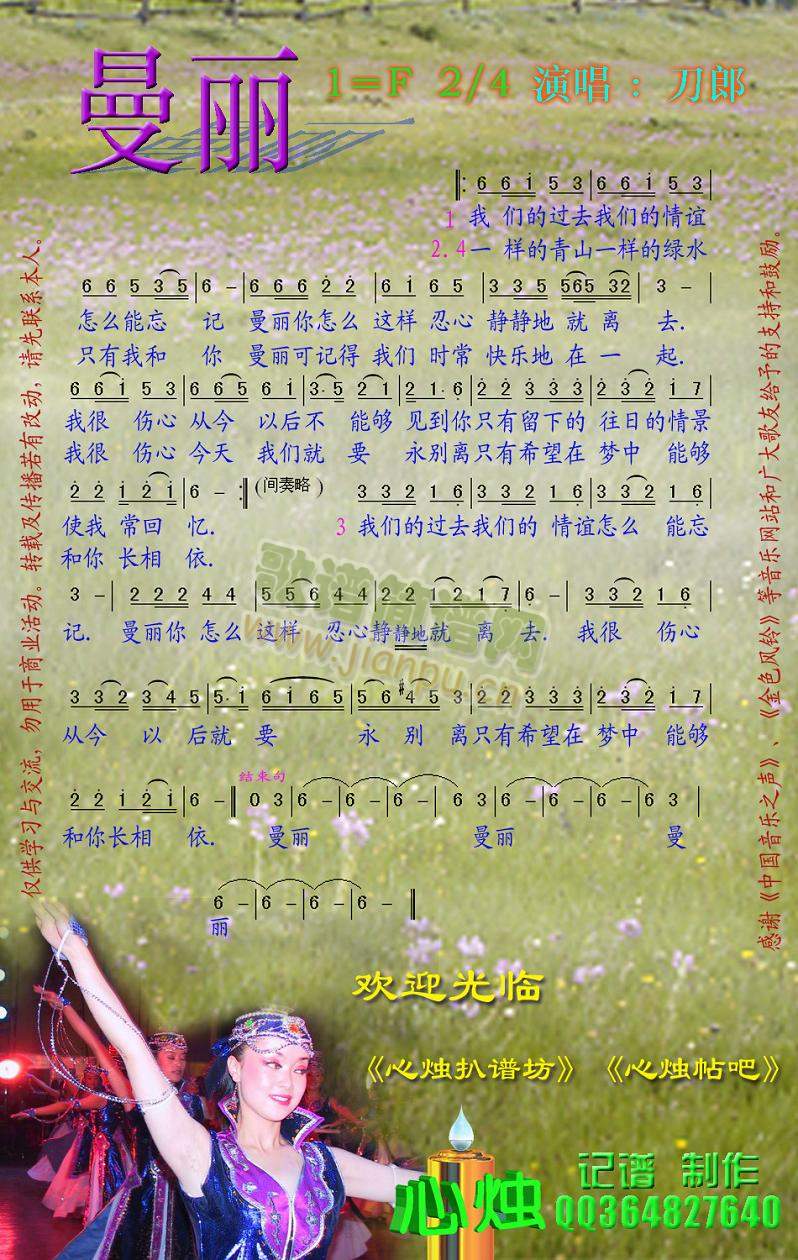 曼丽
1=F 2/4 演唱：刀郎
6 6 i 5 3 6 6 i 5 3
1 我 们的过去我们的情谊
2.4一 样的青山一样的绿水
6 6 5 3 5 6 - 6 6 6 2 2 6 i 6 5 3 3 5 565 32 3 -
怎么能忘 记 曼丽你怎么 这样 忍心 静静地 就 离 去.
只有我和 你 曼丽可记得 我们 时常 快乐地 在 一 起.
6 6 i 5 3 6 6 5 6 i 3· 5 2 i 2 i· 6 2 2 3 3 3 2 3 2 i 7
我很 伤心 从今 以后不 能够 见到你只有留下的 往日的情景
我很 伤心 今天 我们就 要 永别离只有希望在 梦中 能够
2 2 i 2 i 6 - (间奏略) 3 3 2 1 6 3 3 2 1 6 3 3 2 1 6
使我 常回 忆. 3 我们的过去我们的 情谊怎么 能忘
和你 长相 依.
3 - 2 2 2 4 4 5 5 6 4 4 2 2 1 2 1 7 6 - 3 3 2 1 6
记. 曼丽你 怎么 这样 忍心静静地就 离 去. 我很 伤心
3 3 2 3 4 5 5· i 6 i 6 5 5 6 #4 5 3 2 2 3 3 3 2 3 2 i 7
从今 以 后就 要 永 别 离只有希望在 梦中 能够
2 2 i 2 i 6 - 结束句 0 3 6 - 6 - 6 - 6 3 6 - 6 - 6 - 6 3
和你长相 依. 曼丽 曼丽 曼
6 - 6 - 6 - 6 -
丽
仅供学习与交流，勿用于商业活动。转载及传播若有改动，请先联系本人。
感谢《中国音乐之声》、《金色风铃》等音乐网站和广大歌友给予的支持和鼓励。
歌谱简谱网
www.jianpu.cn
欢迎光临
《心烛扒谱坊》 《心烛帖吧》
心烛
记谱 制作
QQ364827640